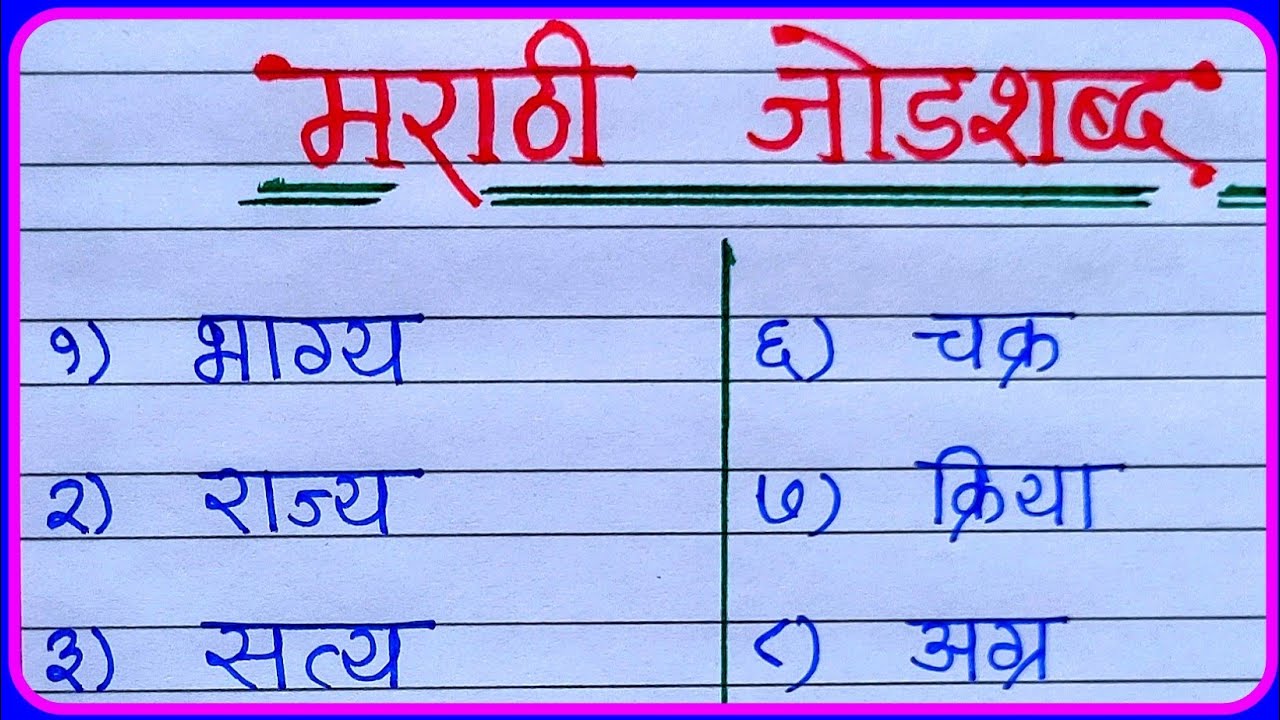 मराठी जोडशब्द
१) भाग्य
२) राज्य
३) सत्य
६) चक्र
७) क्रिया
८) अग्र